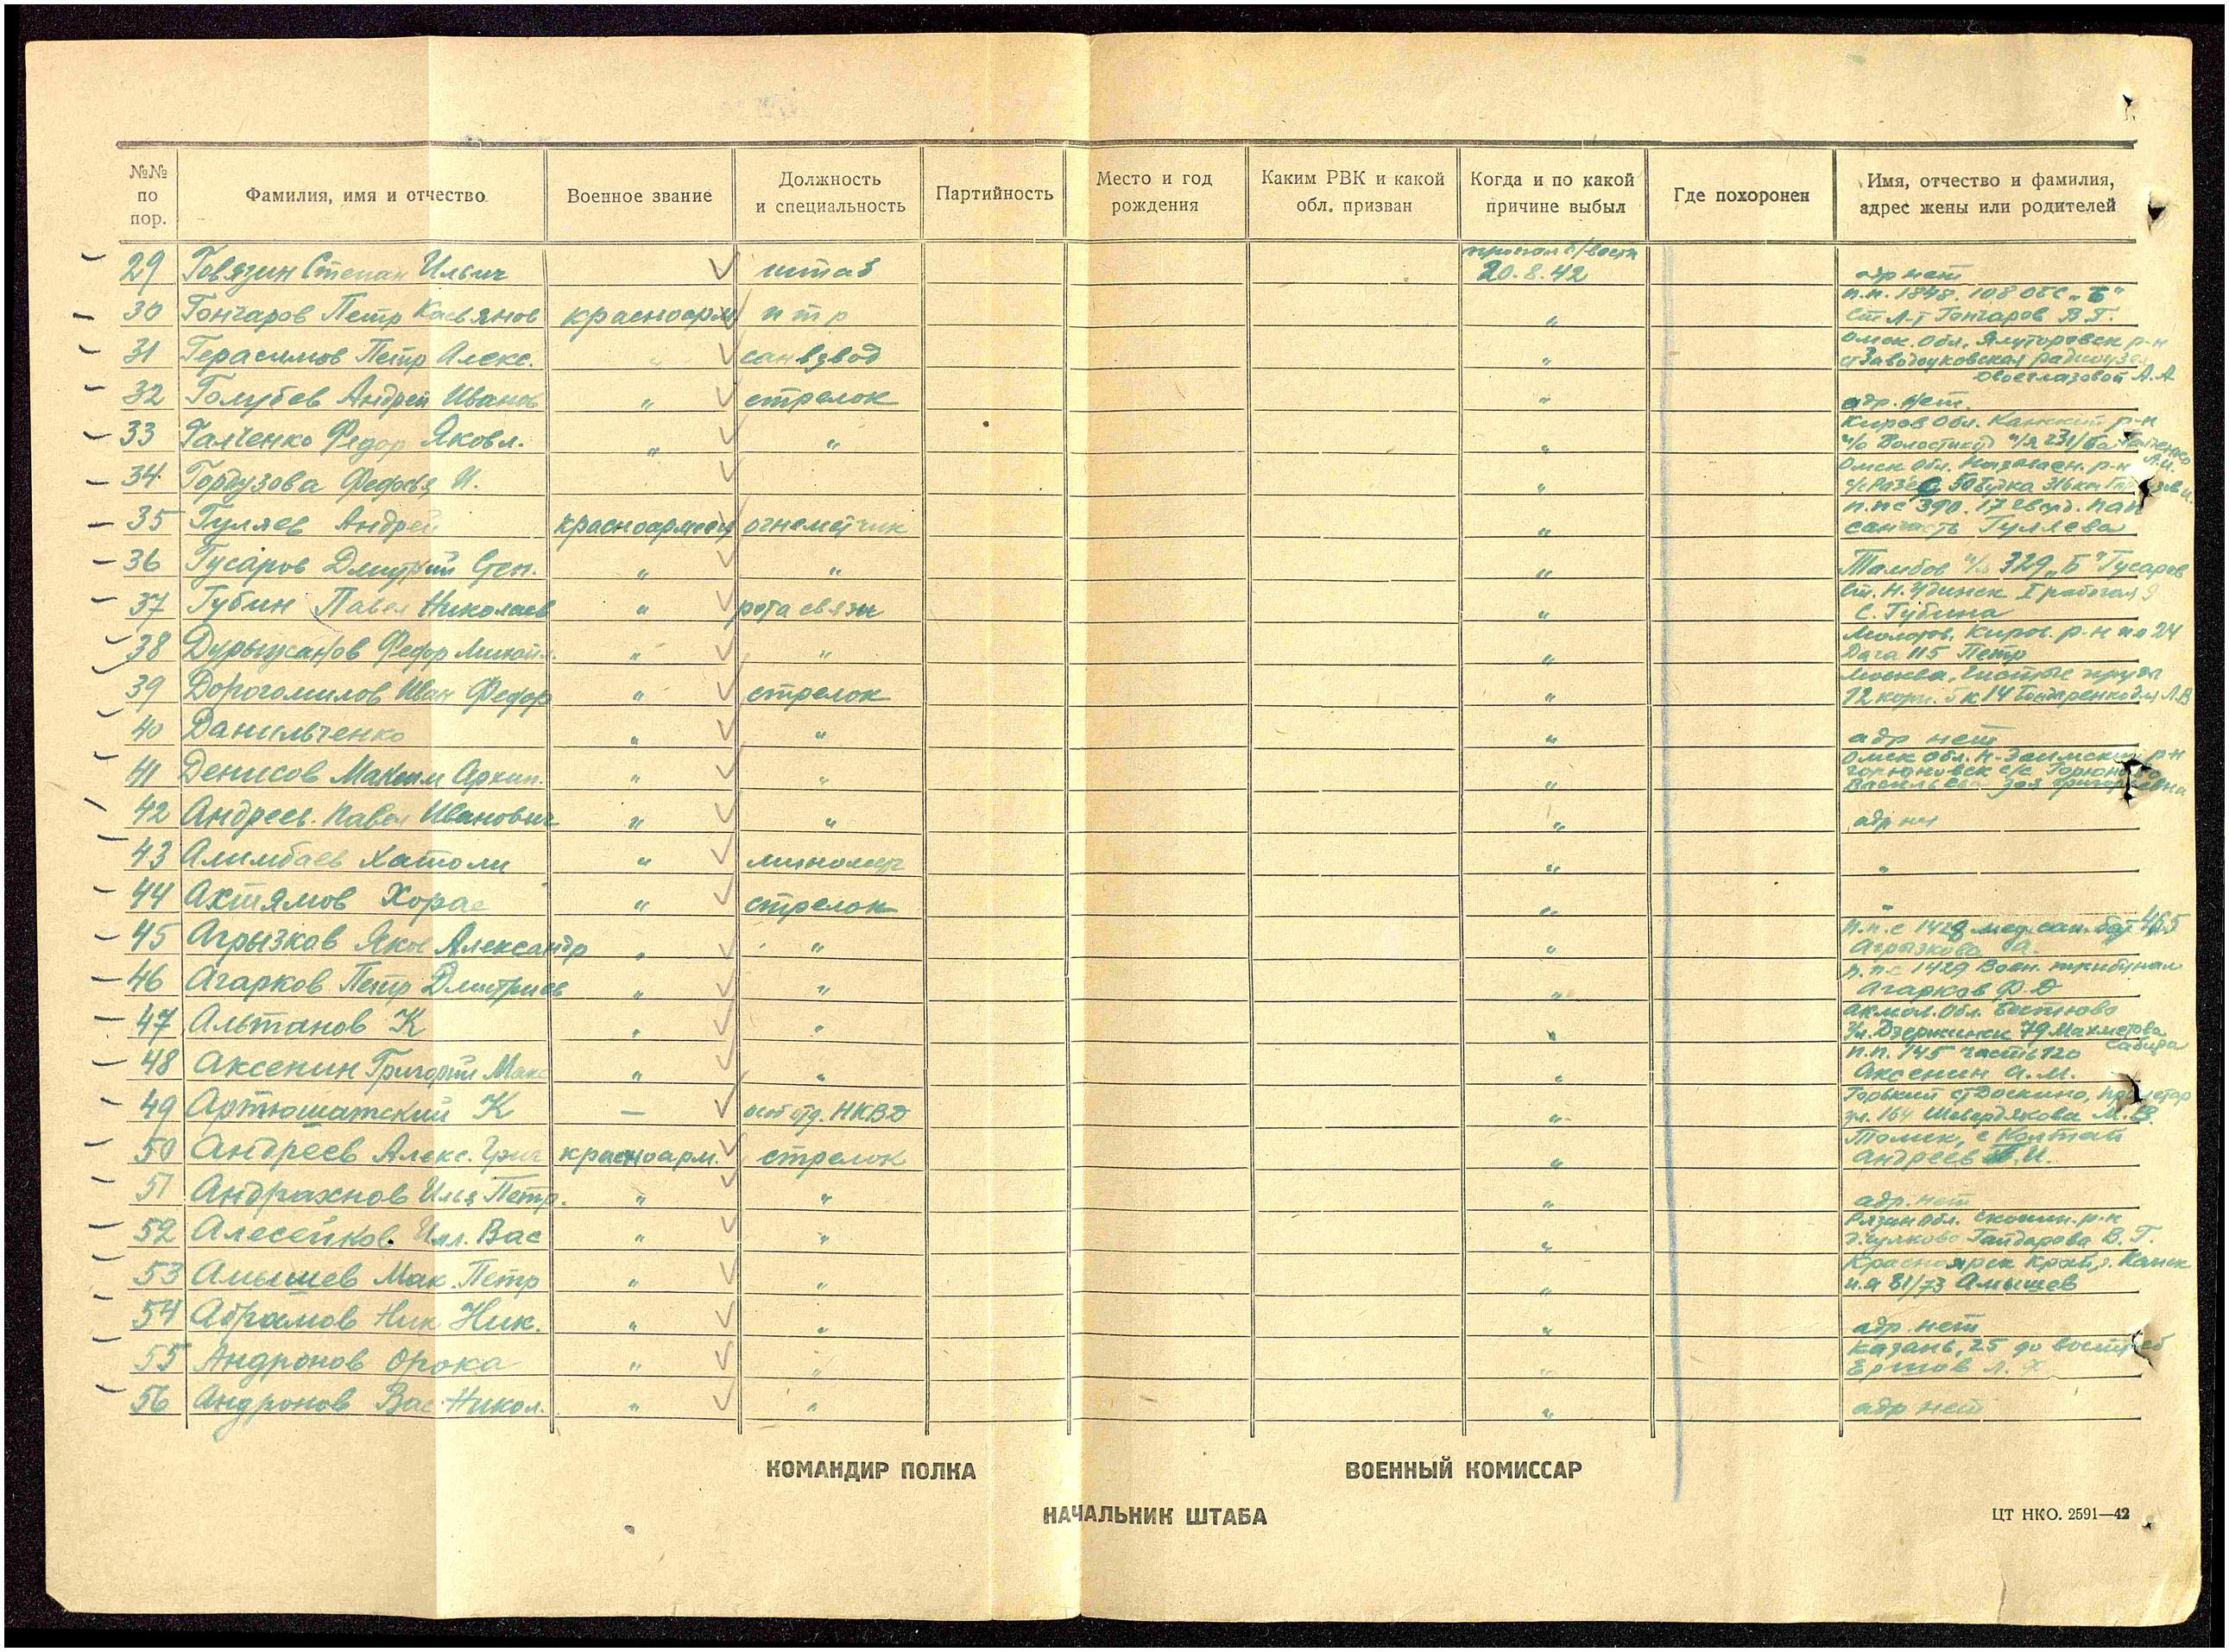 №№ по пор. Фамилия, имя и отчество Военное звание Должность и специальность Партийность Место и год рождения Каким РВК и какой обл. призван Когда и по какой причине выбыл Где похоронен Имя, отчество и фамилия, адрес жены или родителей
29 Говязин Степан Ильич штаб 20.8.42 адр нет
п.п. 1848. 108 ОБС „Б"
30 Гончаров Петр Касьянов красноарм птр " Ст Л-т Гончаров В.Г.
Омск. обл. Ялуторовск р-н
31 Герасимов Петр Алекс. " санвзвод " ст Заводоуковская радиоузел
Двоеглазовой А.А
32 Голубев Андрей Иванов " стрелок " адр. нет.
Киров обл. р-н
33 Галченко Федор Яковл. " " " п/я 231/
Омск обл. р-н
34 Гордузова Федосья И. " 50 будка 316 км
п.п с 390. 17 гвард. пап
35 Гуляев Андрей красноармеец огнеметчик " санчасть Гуляева
36 Гусаров Дмитрий Степ. " " " Тамбов п/я 329 „Б" Гусаров
ст. Н. Удинск I рабочая 9
37 Губин Павел Николаев " рота связи " С. Губина
Молотов, Киров. р-н пп 24
38 Дурыманов Федор Михайл. " " " Дача 115 Петр
Москва, Чистые пруды
39 Дорогомилов Иван Федор " стрелок " 12 корп. 5 к 14 Бондаренко для Л.В
40 Данильченко " " " адр нет
Омск обл. Н-Заимский р-н
41 Денисов Максим Архип. " " " с/с
Васильева Зоя Григорьевна
42 Андреев Павел Иванович " " " адр нет
43 Алимбаев Хатоли " минометч " "
44 Ахтямов Хорас " стрелок " "
п.п.с 1429 мед. сан. бат 465
45 Агрызков Яков Александр " " " Агрызкова А.
п.п.с 1429 Воен. трибунал
46 Агарков Петр Дмитриев " " " Агарков Ф.Д
Акмол. обл.
47 Альтанов К " " " ул. Дзержинск 79 Махметова
Сабира
п.п. 145 часть 120
48 Аксенин Григорий Макс " " " Аксенин А.М.
Горький ст Доскино,
49 Артюшатский К — особ отд. НКВД " ул. 164 Шевердякова М.В.
Томск, с Колтай
50 Андреев Алекс. Григ красноарм. стрелок " Андреев П.И.
51 Андрахнов Илья Петр. " " " адр. нет
Рязан обл. Скопин. р-н
52 Алесейков Илл. Вас " " " Гайдарова В.Г.
Красноярск Край, г. Канск
53 Амышев Мак. Петр " " " п.я 81/73 Амышев
54 Абрамов Ник Ник. " " " адр. нет
Казань, 25 до востреб
55 Андронов Орока " " " Ершов Л.
56 Андронов Вас Никол. " " " адр нет
КОМАНДИР ПОЛКА ВОЕННЫЙ КОМИССАР
НАЧАЛЬНИК ШТАБА ЦТ НКО. 2591—42